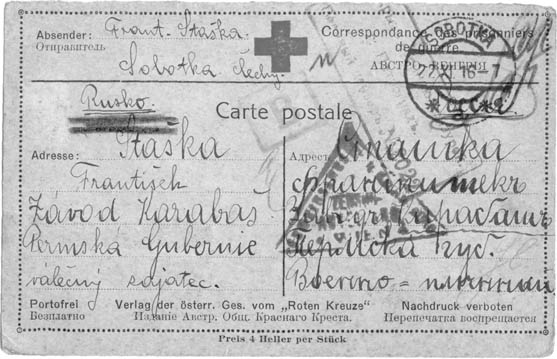 Absender: Frant. Staška
Отправитель
Sobotka Čechy.
Correspondance des prisonniers
de guerre
АВСТРО-ВЕНГРІЯ
SOBOTKA
16-7
Rusko.
Carte postale
Adresse: Staška
František
Závod Karabaš
Permská Gubernie
válečný zajatec.
Адресъ: Сташка
Франтишекъ
Заводъ Карабашъ
Пермска губ.
Военно = плѣнный
Portofrei
Безплатно
Verlag der österr. Ges. vom „Roten Kreuze"
Изданіе Австр. Общ. Краснаго Креста.
Nachdruck verboten
Перепечатка воспрещается
Preis 4 Heller per Stück